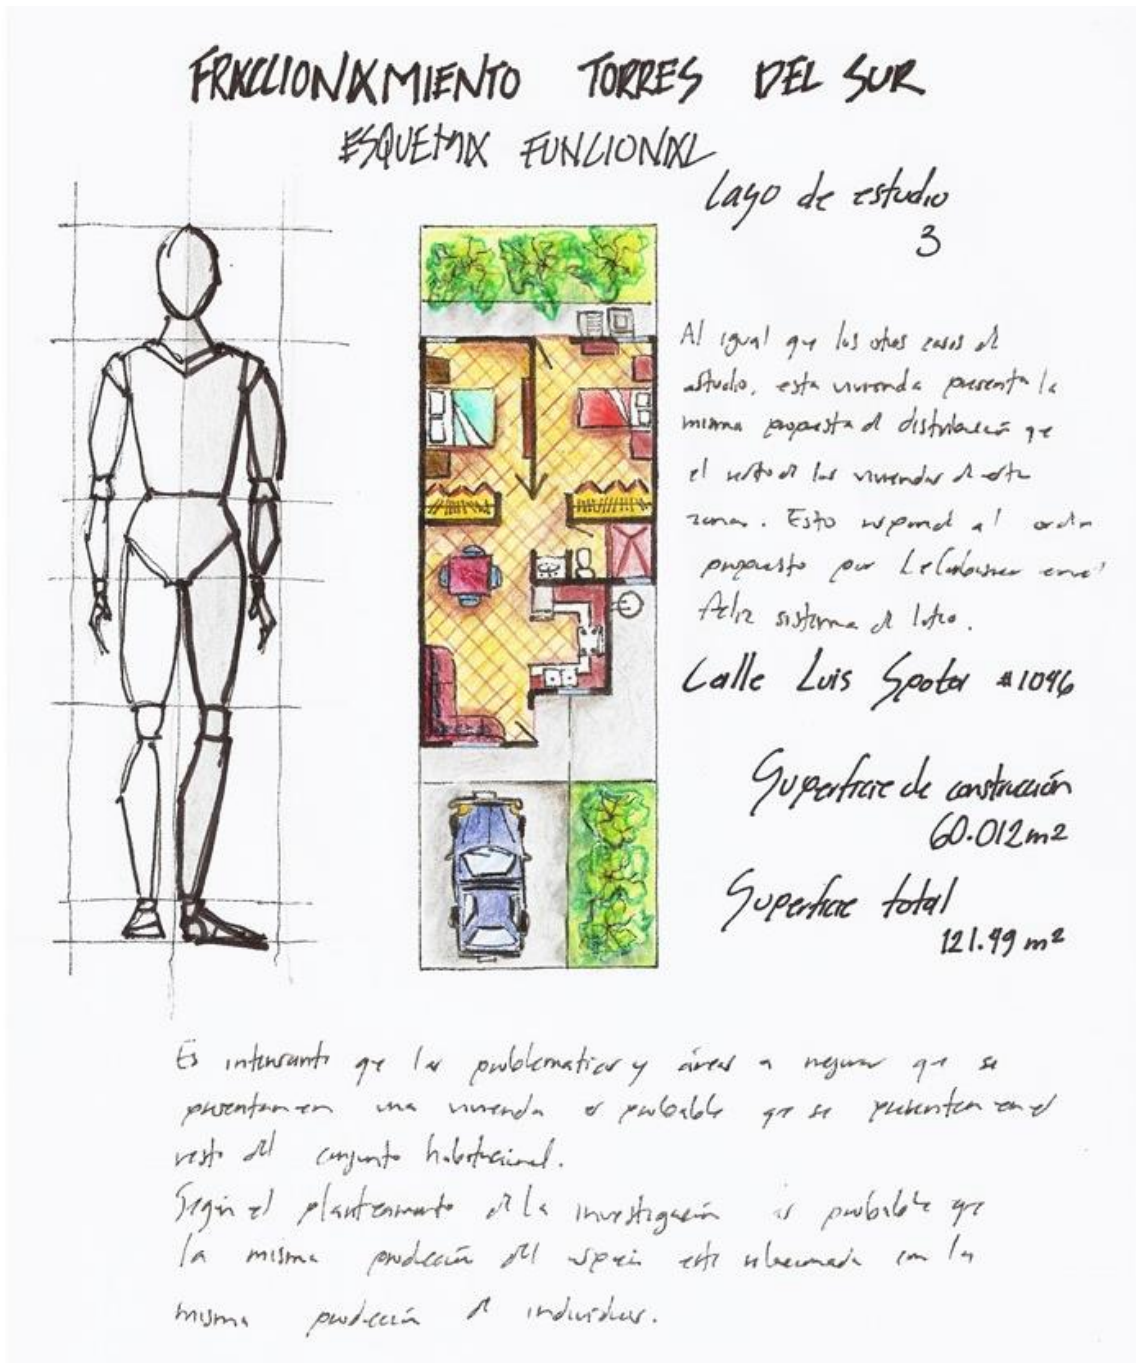 FRACCIONAMIENTO TORRES DEL SUR
ESQUEMA FUNCIONAL
Caso de estudio
3
Al igual que los otros casos de
estudio, esta vivienda presenta la
misma propuesta d distribución que
el resto de las viviendas de esta
zona. Esto respond al orden
propuesto por LeCorbusier en el
sistema d
Calle Luis Spota #1046
Superficie de construcción
60.012 m2
Superficie total
121.49 m2
Es interesante que las problematicas y áreas a mejorar que se
presentan en una vivenda es probable que se presenten en el
resto del conjunto habitacional.
Según el planteamiento de la investigación es probable que
la misma producción del espacio este relacionada con la
misma producción d individuos.